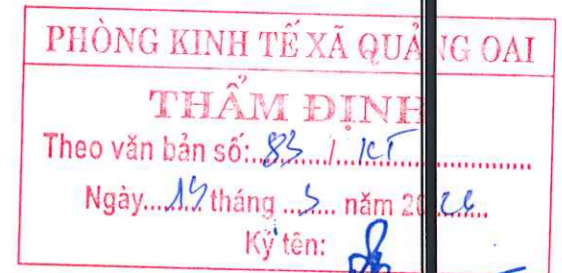 PHÒNG KINH TẾ XÃ QUẢNG OAI
THẨM ĐỊNH
Theo văn bản số: 83 / KT
Ngày 15 tháng 5 năm 2026
Ký tên: